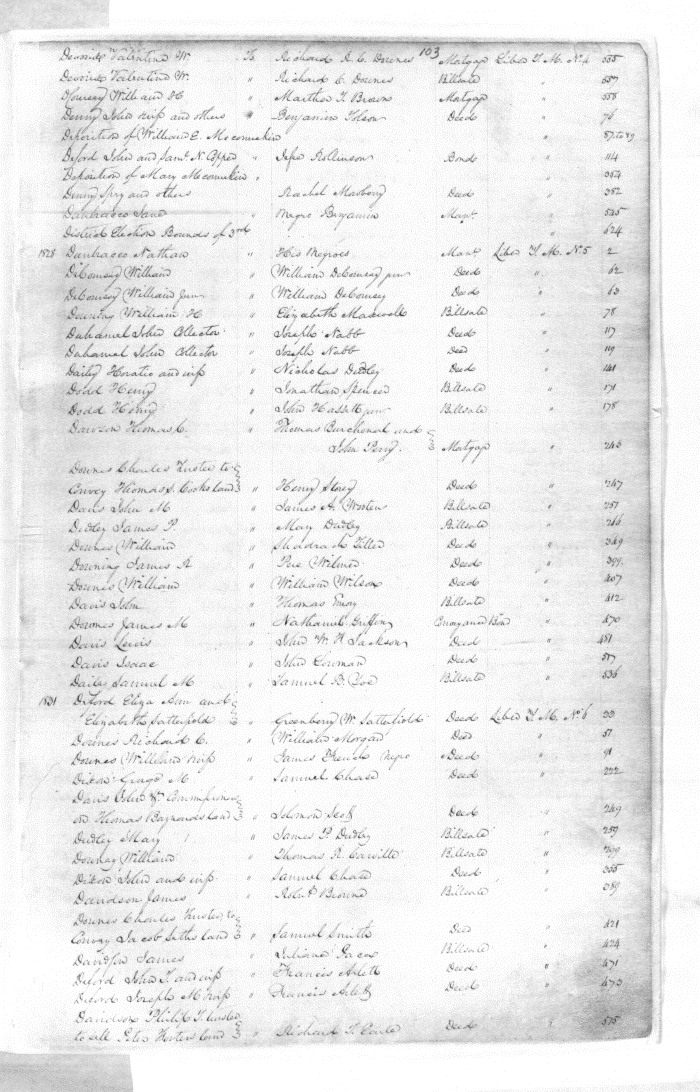 103
Valentine W. To Richard E. C. Downes Mortgage Liber T. M. No 4 555
Valentine W. " Richard C. Downes Billsale " 557
William H " Martha T. Brown Mortgage " 558
Denny John wife and others " Benjamin Tolson Deed " 76
Deposition of William E. Meconnekin " 87 to 89
Deford John and Saml N. Copper " Rollinson Bond " 114
Deposition of Mary Meconnekin " " 354
Denny Spry and others " Rachel Deed " 382
Jane " Negro Benjamin Manr. " 525
District Election Bounds of 3rd " 624
1828 Nathan " His Negroes Manr. Liber T. M. No 5 2
DeCoursey William " William DeCoursey junr Deed " 62
DeCoursey William Junr " William DeCoursey Deed " 63
Downing William H " Elizabeth Maxwell Billsale " 78
Duhamel John Collector " Joseph Nabb Deed " 117
Duhamel John Collector " Joseph Nabb Deed " 119
Daily Horatio and wife " Nicholas Dudley Deed " 141
Dodd Henry " Jonathan Spencer Billsale " 171
Dodd Henry " John Hassett junr Billsale " 178
Dawson Thomas C. " Thomas Burchenal and
John Perry. Mortgage " 243
Downes Charles Trustee to
Convey Thomas S. Cooks land " Henry Storey Deed " 247
Davis John M " James A. Wooters Billsale " 257
Dudley James P. " Mary Dudley Billsale " 266
Downes William " Shadrach Deed " 349
Downing James A " Pere Wilmer Deed " 399
Downes William " William Wilson Deed " 407
Davis John " Thomas Emory Billsale " 412
Downes James M " Nathaniel Griffin Conveyance Bond " 470
Davis Lewis " John W. H. Jackson Deed " 481
Davis Isaac " John Cowman Deed " 517
Dailey Samuel M " Samuel B. Billsale " 536
1831 Deford Eliza Ann and
Elizabeth Satterfield " Greenberry W. Satterfield Deed Liber T. M. No 6 33
Downes Richard C. " William Morgan Deed " 51
Downes William wife " James French Negro Deed " 91
Dixon M " Samuel Chase Deed " 222
Davis John & Commissioners
on Thomas Baynards land " Solomon Scott Deed " 249
Dudley Mary " James P. Dudley Billsale " 259
William " Thomas R. Billsale "
Dixon John and wife " Samuel Chase Deed " 355
Davidson James " Robt Browne Billsale " 389
Downes Charles Trustee to
Convey Jacob land " Samuel Smith Deed " 421
Davidson James " Juliana Billsale " 424
Deford John T. and wife " Francis Arlett Deed " 471
Deford Joseph M wife " Francis Arlett Deed " 473
Davidson Philip T. trustee
to sell Peter land " Richard T. Earle Deed " 575